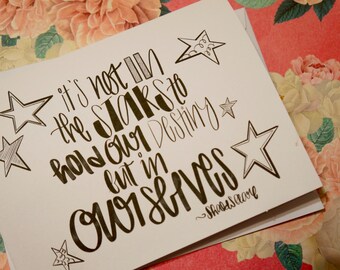 it's not in
the STARS to
hold our Destiny
but in
OURSELVES
~Shakespeare